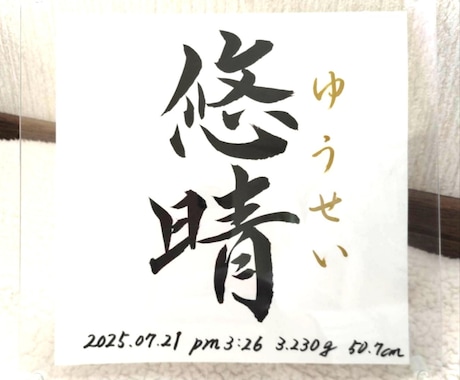 悠晴
ゆうせい
2025.07.21 pm3:26 3.230g 50.7cm